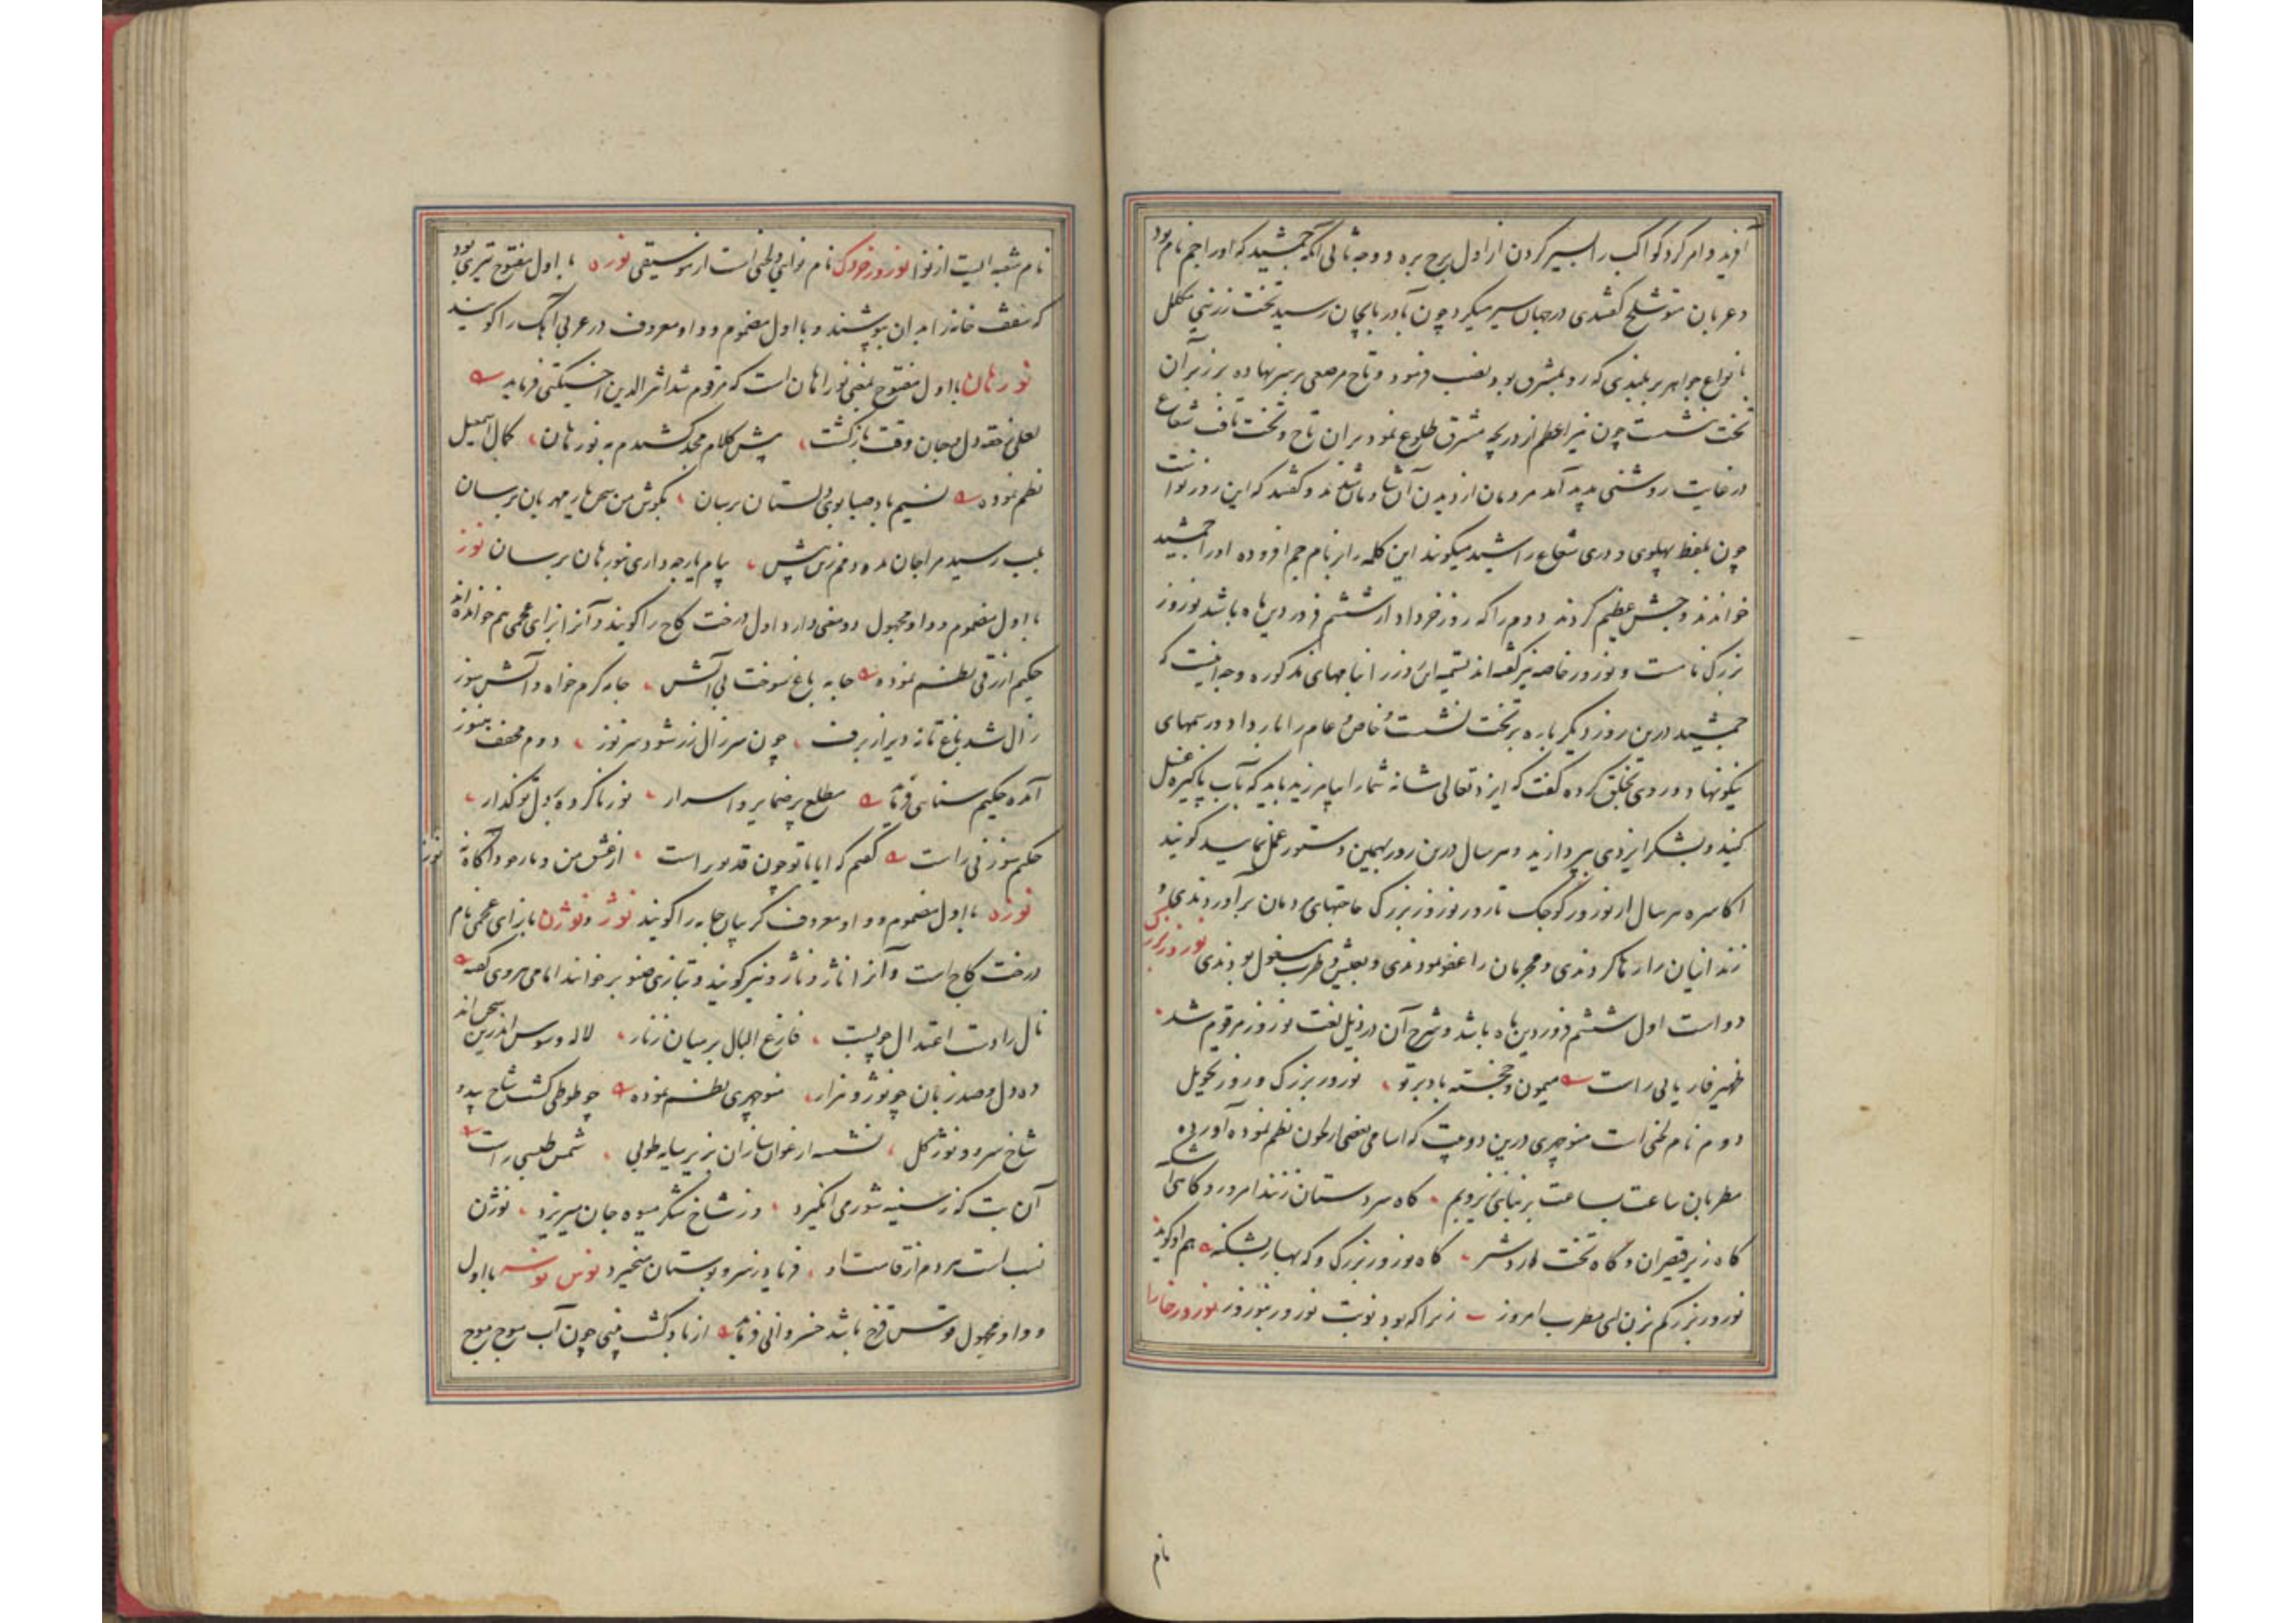 آفرید و امر کرد کواکب را بسیر کردن از اول برج بره و وجه ثانی آنکه جمشید که اورا جم نام بود
و عربان متوشلخ گفتندی در جهان سیر میکرد چون بآذربایجان رسید تخت زرینی مکلل
بانواع جواهر بر بلندی که رو بمشرق بود نصب فرمود و تاج مرصعی بر سر نهاده بر زبر آن
تخت نشست چون نیر اعظم از دریچه مشرق طلوع نمود بران تاج و تخت تافت شعاع
در غایت روشنی پدید آمد مردمان از دیدن آن شادمان شدند و گفتند که این روز نو است
چون بلفظ پهلوی و دری شعاع را شید میگویند این کلمه را بر نام جم افزوده اورا جمشید
خواندند و جشن عظیم کردند دوم را که روز خرداد از ششم فروردین ماه باشد نوروز
بزرگ نامست و نوروز خاصه نیز گفته اند تسمیه این روز را بنامهای مذکوره وجه اینست که
جمشید درین روز دیگر باره بر تخت نشست و خاص و عام را بار داد و رسمهای
نیکو نهاد و روی بخلق کرده گفت که ایزد تعالی شانه شما را بیافرید باید که بآب پاکیزه غسل
کنید و بشکر ایزدی پردازید و هر سال درین روز بهمین دستور عمل نمایید گویند
اکاسره هر سال از نوروز کوچک تا روز نوروز بزرگ حاجتهای مردمان برآوردندی و
زندانیان را رها کردندی و مجرمان را عفو نمودندی و بعیش و طرب مشغول بودندی نوروز بزرگ
دو است اول ششم فروردین ماه باشد و شرح آن در ذیل لغت نوروز مرقوم شد
ظهیر فاریابی راست میمون و خجسته باد بر تو نوروز بزرگ و روز تحویل
دوم نام لحنی است منوچهری درین دو بیت که اسامی بعضی از لحون نظم نموده آورده
مطربان ساعت بساعت بر نباتی زیر و بم گاه سروستان زنند امروز و گاهی اشکنه
گاه زیر قیصران و گاه تخت اردشیر گاه نوروز بزرگ و گه بهار بشکنه هم او گوید
نوروز بزرگم بزن ای مطرب امروز زیرا که بود نوبت نوروز بنوروز نوروز خارا
نام
نام شعبه ایست از نوا نوروز خردک نام نوای و لحنی است از موسیقی نوره با اول مفتوح تیری بود
که سقف خانه را بدان بپوشند و با اول مضموم و واو معروف در عربی آهک را گویند
نورهان با اول مفتوح بمعنی نوراهان است که مرقوم شد اثیر الدین اخسیکتی فرماید
لعلی ز حقه دل بجان وقت بازگشت پیش کلام مجد کشیدم به نورهان کمال اسمعیل
نظم نموده نسیم باد صبا بوی دلستان برسان بگوش من سخن یار مهربان برسان
بلب رسید مرا جان پیام یار چه داری نورهان برسان نوز
با اول مضموم و واو مجهول دو معنی دارد اول درخت کاج را گویند و آنرا بزای عجمی هم خوانده اند
حکیم ازرقی نظم نموده جامه باغ سوخت بی آتش جامه گرم خواه و آتش سوز
زال شد باغ تازه دیر از برف چون سر زال زر شود سر نوز دوم مخفف هنوز
آمده حکیم سنائی فرماید مطلع بر ضمایر و اسرار نوز ناکرده بر دل تو گذار
حکیم سوزنی راست گفتم که ایا با تو چون قد تو راست از عشق من
نوز
نوزه با اول مضموم و واو معروف گریبان جامه را گویند نوژ و نوژن با زای عجمی نام
درخت کاج است و آنرا ناژ و ناژو نیز گویند و بتازی صنوبر خوانند امامی هروی گفته
فارغ البال بر میان زنار لاله و سوس اندرین سخن اند
ده دل و صد زبان چو نوژ و هزار منوچهری نظم نموده چو طوطی گشت شاخ بید و
شاخ سرو و نوژ گل نشسته ارغوان سازان بزیر سایه طوبی شمس طبسی راست
آن بت که ز سینه شور می انگیزد وز شاخ شکر میوه جان میریزد نوژن
نسب است مردم از قامت او فریاد ز سرو بوستان میخیزد نوس نوسه با اول
و واو مجهول قوس قزح باشد خسروانی فرماید از باد کشت بینی چون آب موج موج